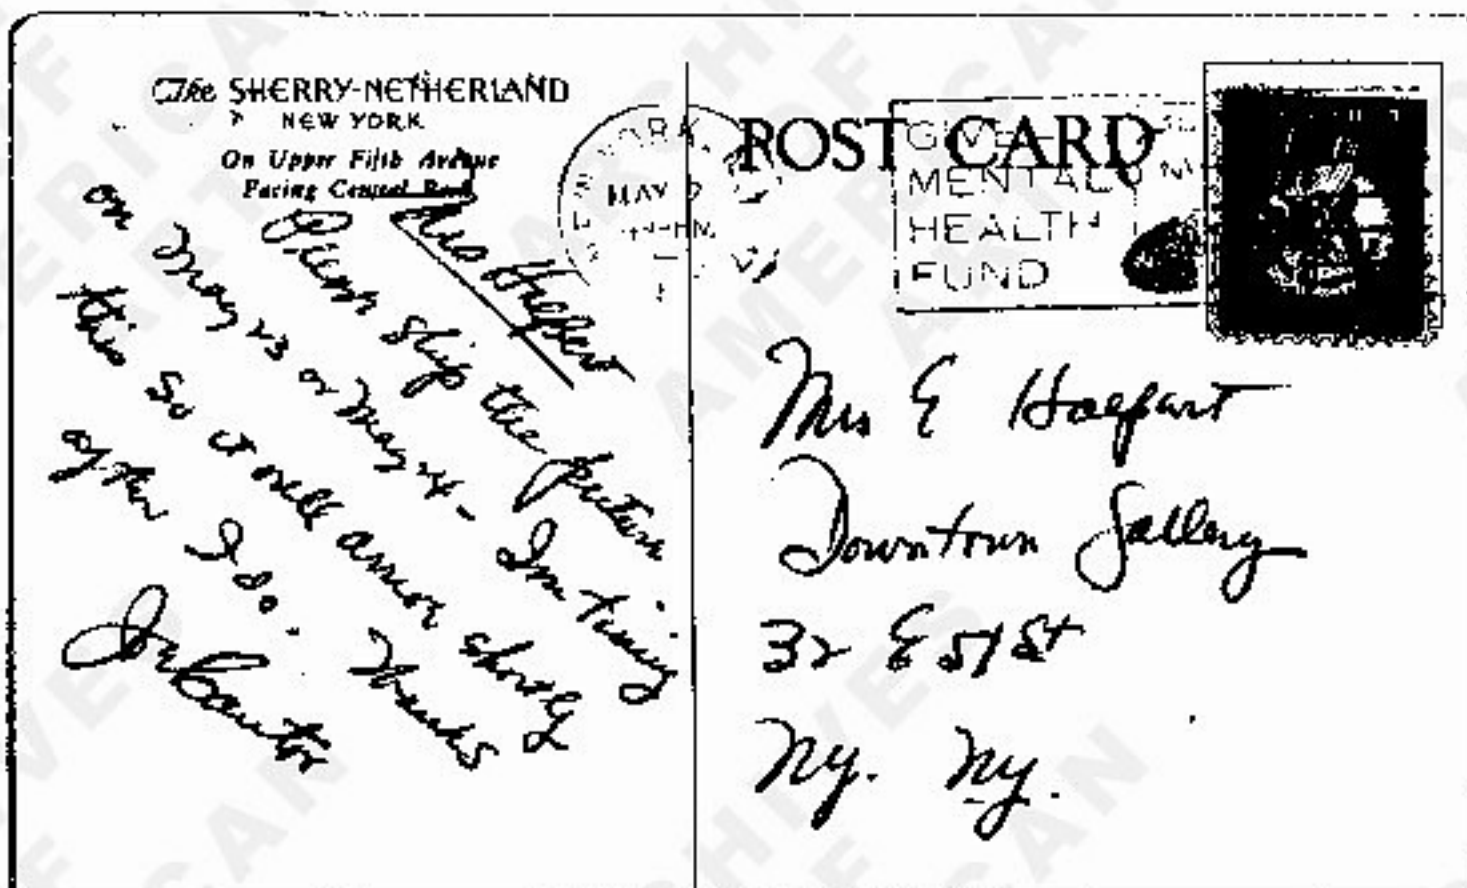 The SHERRY-NETHERLAND
NEW YORK
On Upper Fifth Avenue
Facing Central Park
Mrs Halpert
Please ship the picture
on May 23 or May 24 - Im timing
this so it will arrive shortly
after I do. Thanks
POST CARD
MAY
GIVE
MENTAL
HEALTH
FUND
Mrs E Halpart
Downtown Gallery
32 E 51 St
Ny. Ny.
ARCHIVES OF
AMERICAN ART